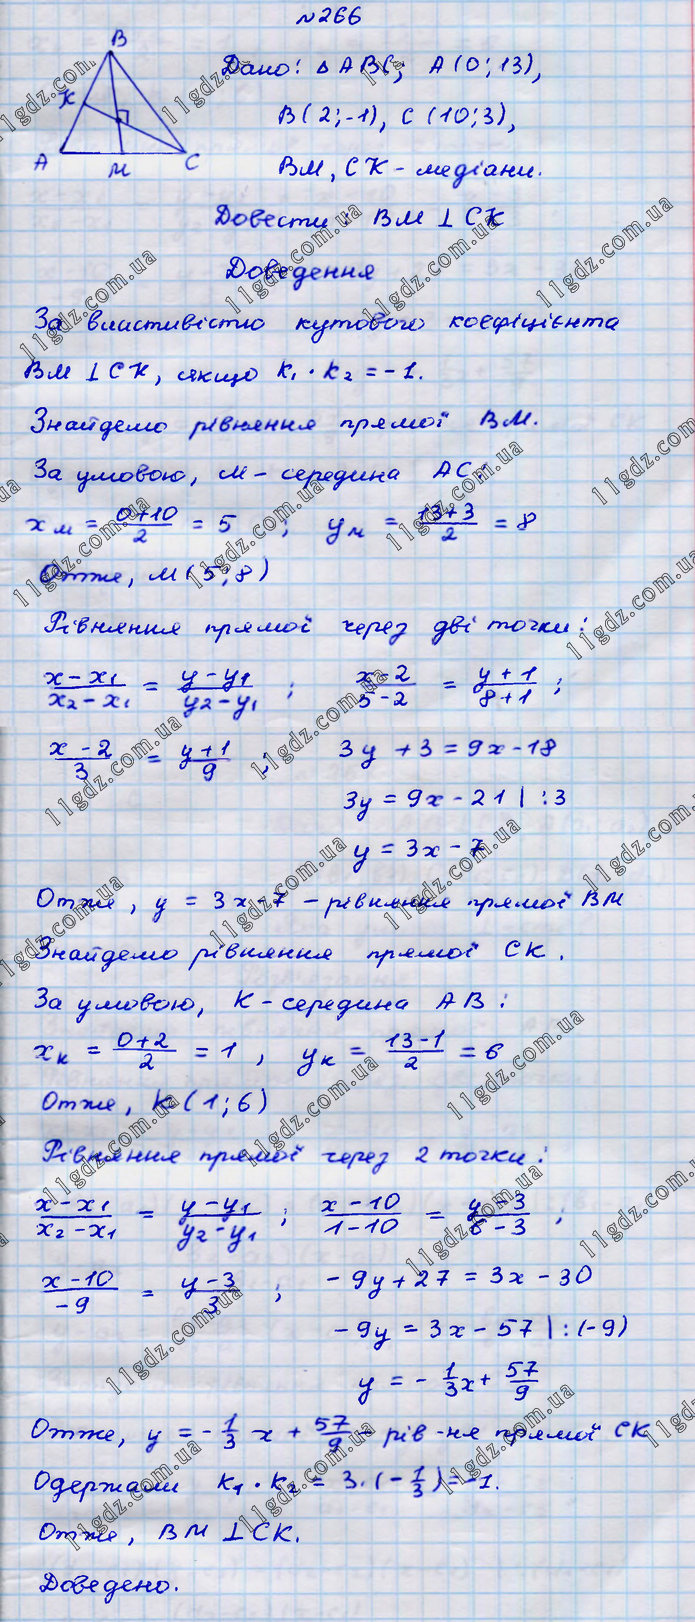 №266
Дано: △ABC; A(0;13),
B(2;-1), C(10;3),
BM, CK - медіани.
Довести: BM ⊥ CK
Доведення
За властивістю кутового коефіцієнта
BM ⊥ CK, якщо k₁ · k₂ = -1.
Знайдемо рівняння прямої BM.
За умовою, M - середина AC:
x_M = (0+10)/2 = 5 ; y_M = (13+3)/2 = 8
Отже, M(5;8)
Рівняння прямої через дві точки:
(x-x₁)/(x₂-x₁) = (y-y₁)/(y₂-y₁) ; (x-2)/(5-2) = (y+1)/(8+1) ;
(x-2)/3 = (y+1)/9 ; 3y+3 = 9x-18
3y = 9x-21 | :3
y = 3x-7
Отже, y = 3x-7 - рівняння прямої BM
Знайдемо рівняння прямої CK.
За умовою, K - середина AB:
x_K = (0+2)/2 = 1 , y_K = (13-1)/2 = 6
Отже, K(1;6)
Рівняння прямої через 2 точки:
(x-x₁)/(x₂-x₁) = (y-y₁)/(y₂-y₁) ; (x-10)/(1-10) = (y-3)/(6-3) ;
(x-10)/-9 = (y-3)/3 ; -9y+27 = 3x-30
-9y = 3x-57 | :(-9)
y = -1/3x + 57/9
Отже, y = -1/3 x + 57/9 - рів-ня прямої CK
Одержали k₁ · k₂ = 3·(-1/3) = -1.
Отже, BM ⊥ CK.
Доведено.
B
K
A
M
C
11gdz.com.ua